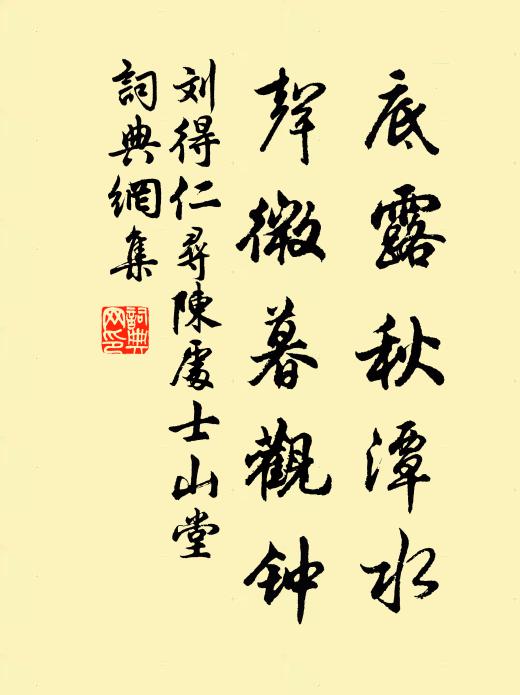 底露秋潭水
聲微暮觀钟
刘得仁尋陳處士山堂
詞典網集
詞典网印